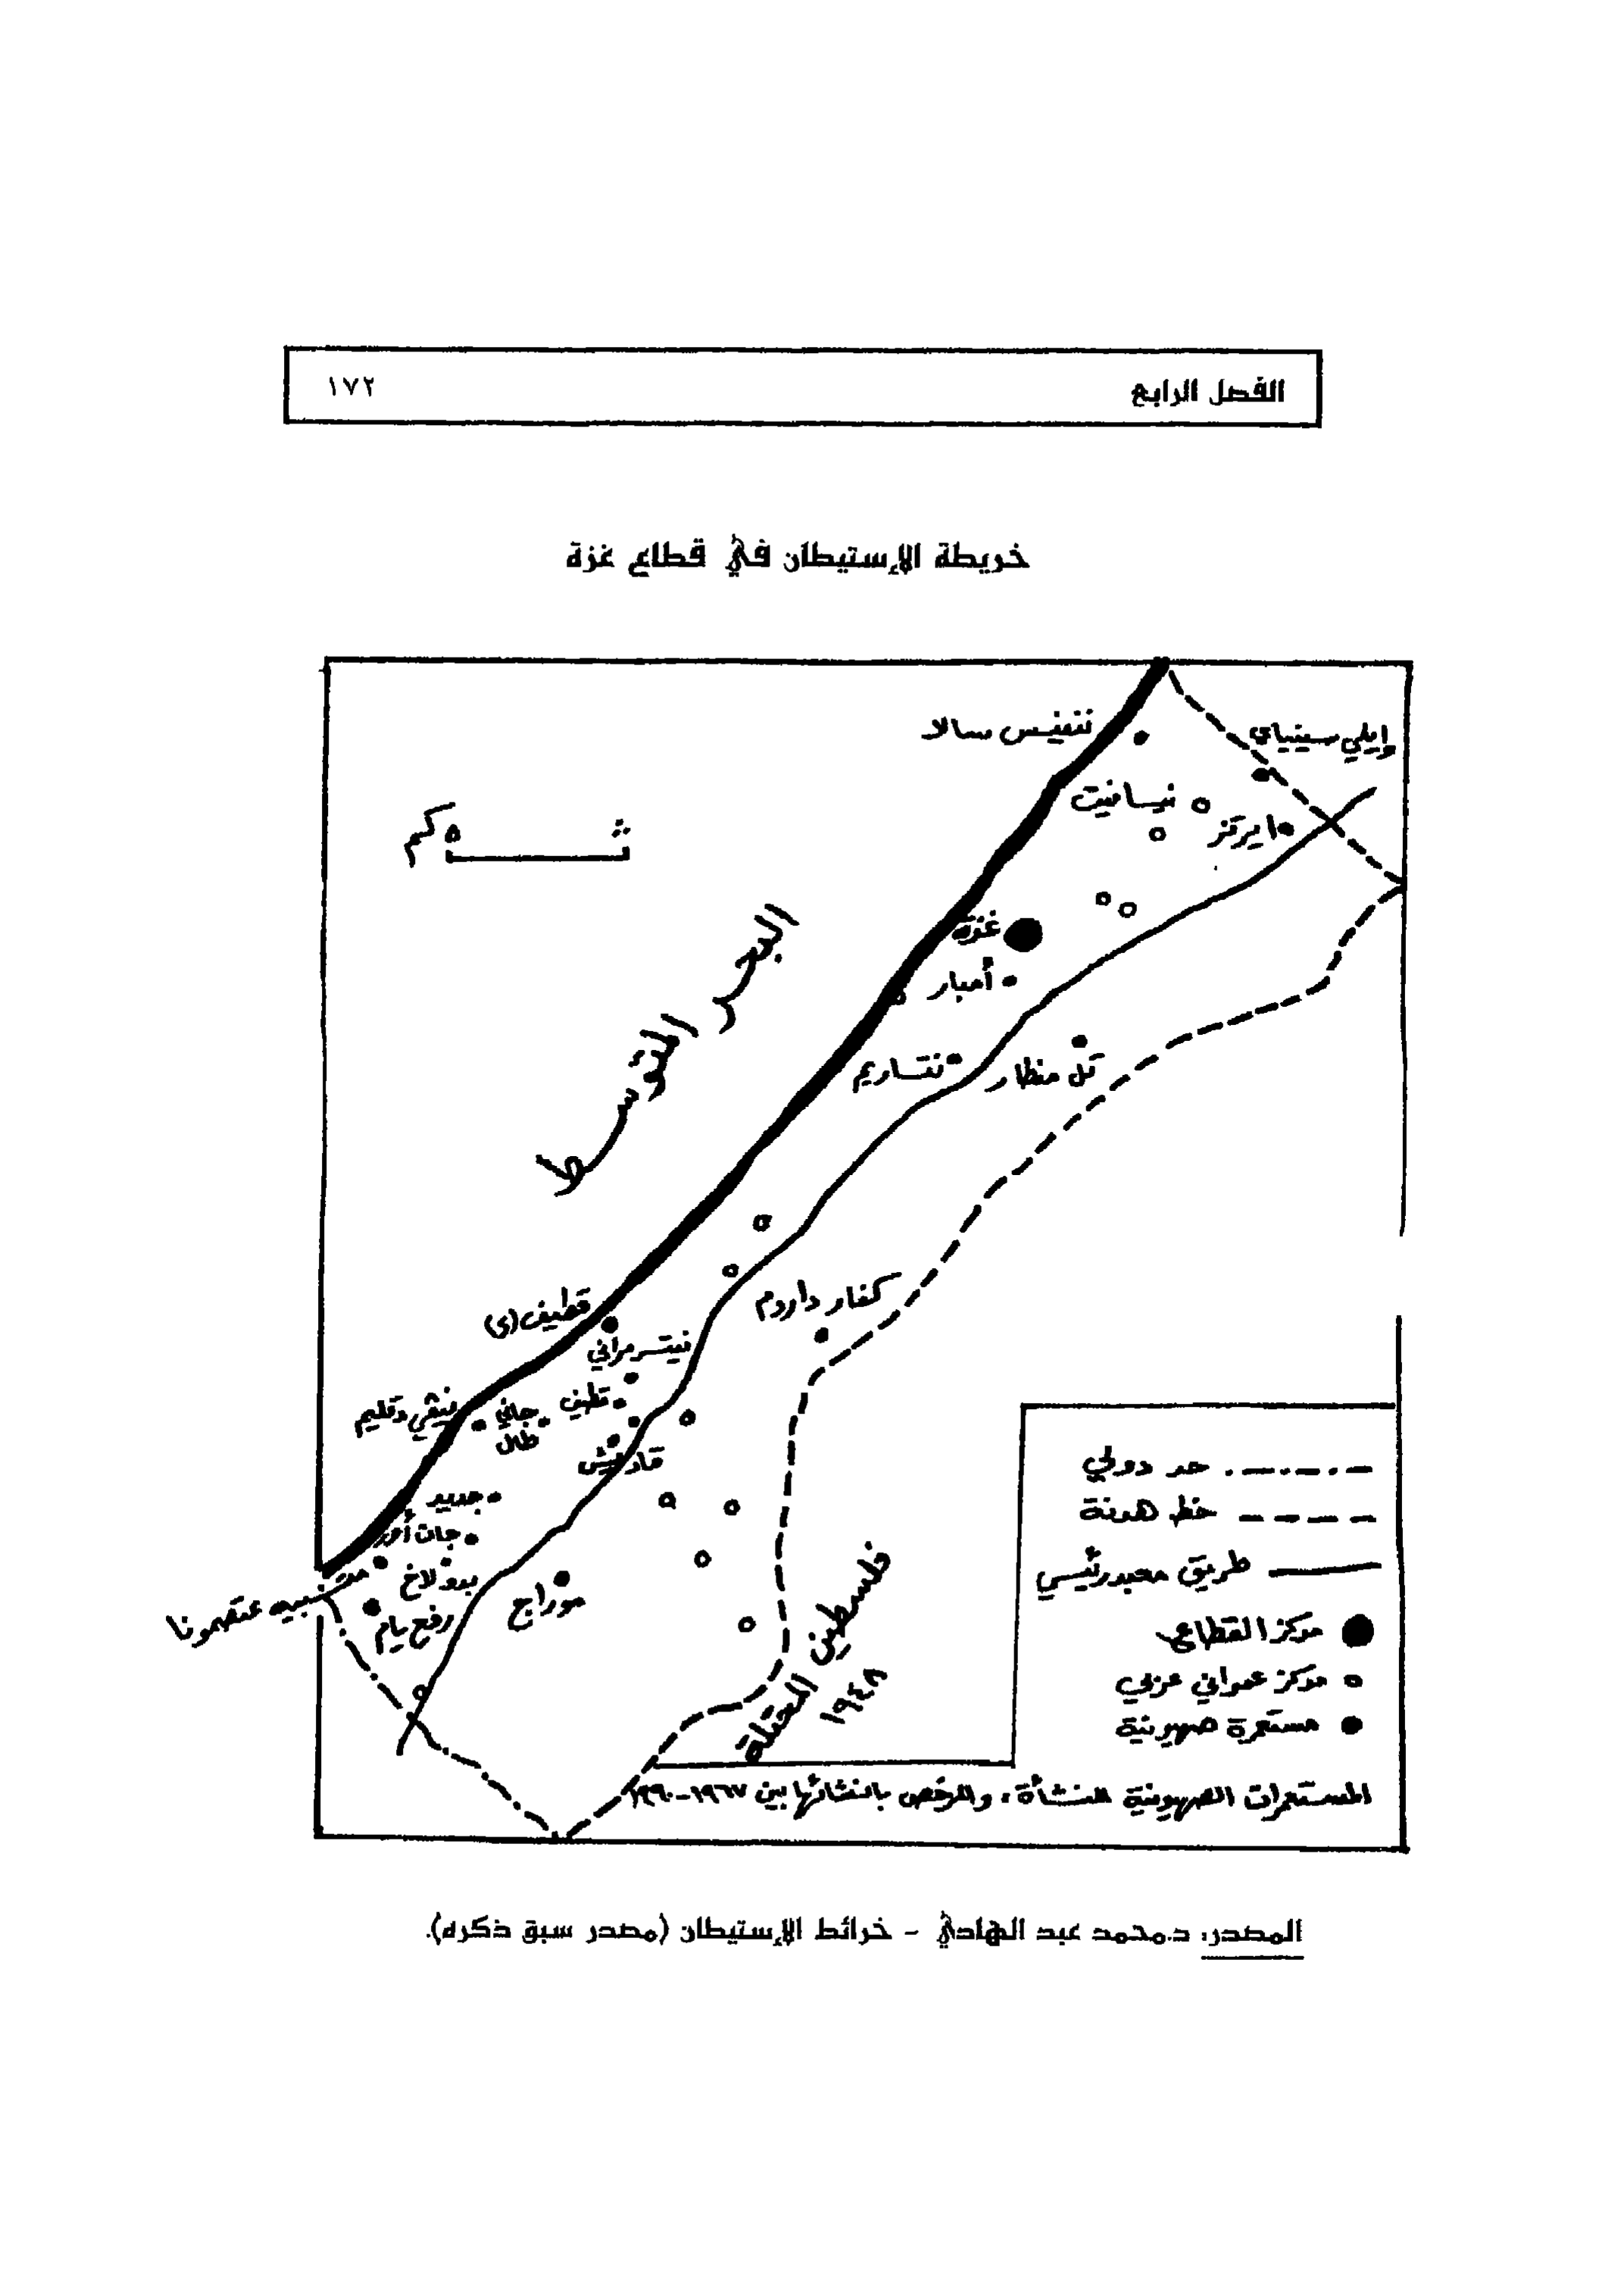 الفصل الرابع
١٧٢
خريطة الإستيطان في قطاع غزة
إيلي سيناي
سالا
نيسانيت
ايرتز
٥ كم
غزة
البحر المتوسط
نتساريم
تل منظار
كفار داروم
قطيف (ي)
قطيف
جاني
طال
جديد
جان أور
بدولاخ
رفح يام
موراج
فلسطين المحتلة
١٩٤٨
حد دولي
خط هدنة
طريق معبد رئيسي
مركز القطاع
مركز عمراني عربي
مستعمرة صهيونية
المستعمرات الصهيونية المنشأة، والمرخص بانشائها بين ١٩٦٧-١٩٩٠
المصدر: د.محمد عبد الهادي - خرائط الإستيطان (مصدر سبق ذكره).